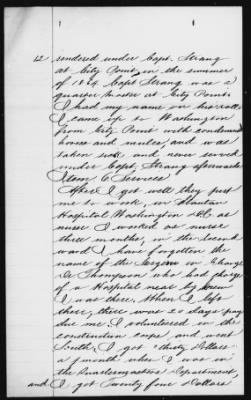 12 rendered under Capt. Strang
at City Point, in the summer
of 1864 Capt Strang was a
quarter master at City Point.
I had my name on his rolls
I came up to Washington
from City Point with condemned
horses and mules, and was
taken sick and never served
under Capt. Strang afterwards
Item 6. Services
After I got well they put
me to work, in Stanton
Hospital Washington D.C. as
nurse I worked as nurse
three months, in the second
ward I have forgotten the
name of the Surgeon in Charge
Dr Thompson who had charge
of a Hospital near by knew
I was there. When I left
there, there was 20 days pay
due me. I volunteered in the
construction corps and went
South, I got thirty Dollars
a month when I was in
the Quartermasters Department
and I got Twenty four Dollars